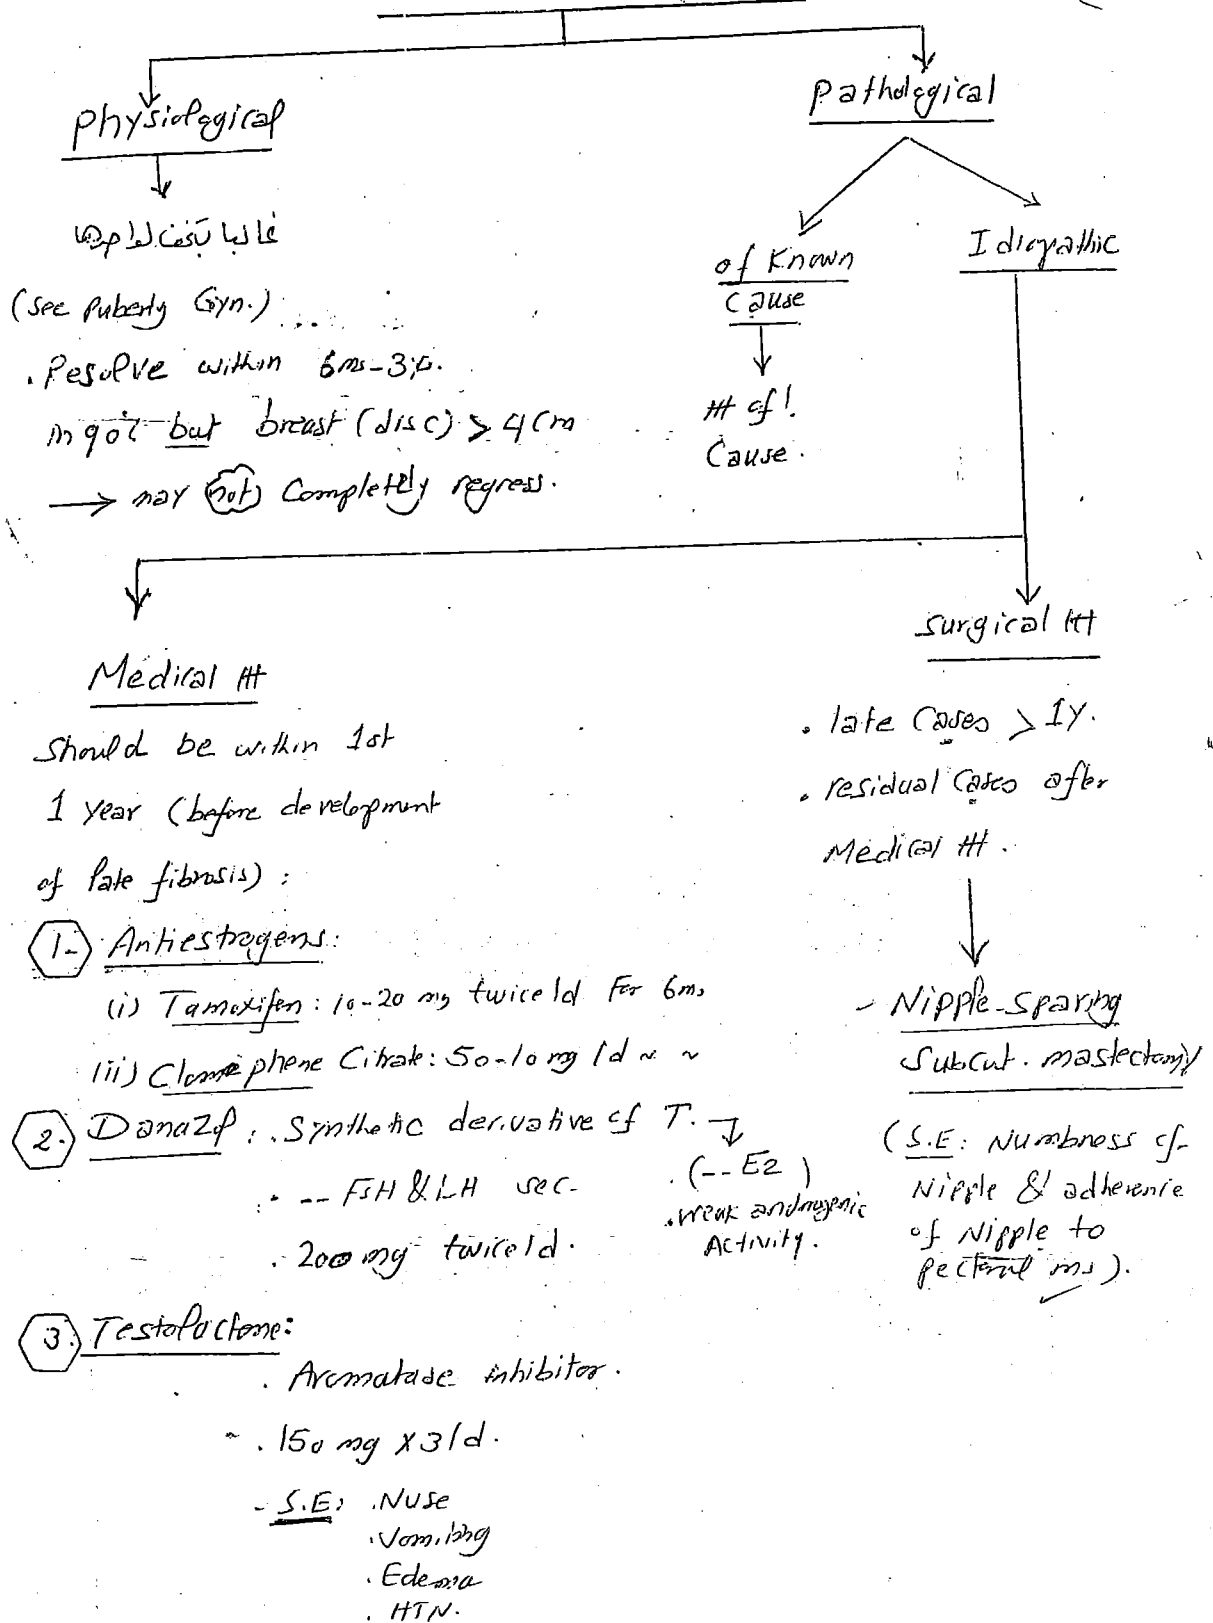 Physiological
غالبا بتخف لوحدها
(see puberty Gyn.)
. Resolve within 6ms-3ys.
in 90% but breast (disc) > 4 Cm
→ may not Completely regress.
Pathological
of Known
Cause
ttt of !
Cause.
Idiopathic
Medical ttt
Should be within 1st
1 year (before development
of late fibrosis) :
1- Antiestrogens:
(i) Tamoxifen : 10-20 mg twice/d For 6ms
(ii) Clomiphene Citrate: 50-10 mg /d ~ ~
2. Danazol : . Synthetic derivative of T. →
. (-- E2 )
. weak androgenic
Activity.
. -- FSH & LH sec.
. 200 mg twice/d.
3. Testolactone:
. Aromatase inhibitor.
. 150 mg x3/d.
- S.E: . Nuse
. Vomiting
. Edema
. HTN.
Surgical ttt
. late Cases > 1y.
. residual Cases after
Medical ttt.
- Nipple-Sparing
Subcut. mastectomy
(S.E: Numbness of
Nipple & adherence
of Nipple to
pectoral ms).